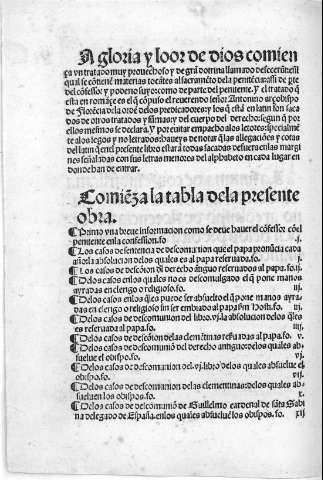 A gloria y loor de dios comien
ça vn tratado muy prouechoso y de grã dotrina llamado
qual se cõtienẽ materias tocãtes al sacramẽto dela penitẽcia: assi de pte
del cõfessor y poderio suyo: como de parte del penitente. Y el tratado q̃
esta en romãçe es el q̃ cõpuso el reuerendo señor Antonino arçobispo
de Florẽcia dela ordẽ delos predicadores: y los q̃ estã en latin son saca
dos de otros tratados y sũmas: y del cuerpo del derecho: segun q̃ por
ellos mesmos se declara. Y por euitar empacho alos letores: specialmẽ
te alos legos y no letrados: haueys de notar q̃ las allegaciones y cotas
del latin q̃ enel presente libro estarã todas sacadas defuera enlas margi
nes señaladas con sus letras menores del alphabeto en cada lugar en
donde han de entrar.
Comiẽza la tabla dela presente
obra.
¶ Primo vna breue informacion como se deue hauer el cõfessor cõel
penitente enla confession. fo. .j.
¶ Los casos de sentencia de descomunion que el papa pronũcia cada
año: la absolucion delos quales es al papa reseruada. fo. j.
¶ Los casos de descõion de derecho ãtiguo reseruados al papa. fo. ij.
¶ Delos casos enlos quales no es descomulgado el q̃ pone manos
ayradas en clerigo o religioso. fo. iij.
¶ Delos casos enlos q̃les puede ser absuelto el q̃ pone manos ayra-
das en clerigo o religioso sin ser embiado al papa fo. iij.
¶ Delos casos de descomunion del libro .vj. la absolucion delos q̃les
es reseruada al papa. fo. iiij.
¶ Delos casos de descõion delas clemẽtinas reseruadas al papa fo. v.
¶ Delos casos de descomuniõ del derecho antiguo: delos quales ab-
suelue el obispo. fo. vj.
¶ Delos casos de descomunion del .vj. libro delos quales absuelue el
obispo. fo. vij.
¶ Delos casos de descomunion delas clementinas: delos quales ab-
suelue los obispos. fo. x.
¶ Delos casos de descomuniõ de Guillelmo cardenal de sãta Sabi
na delegado de España. enlos quales absuelue los obispos. fo. xij